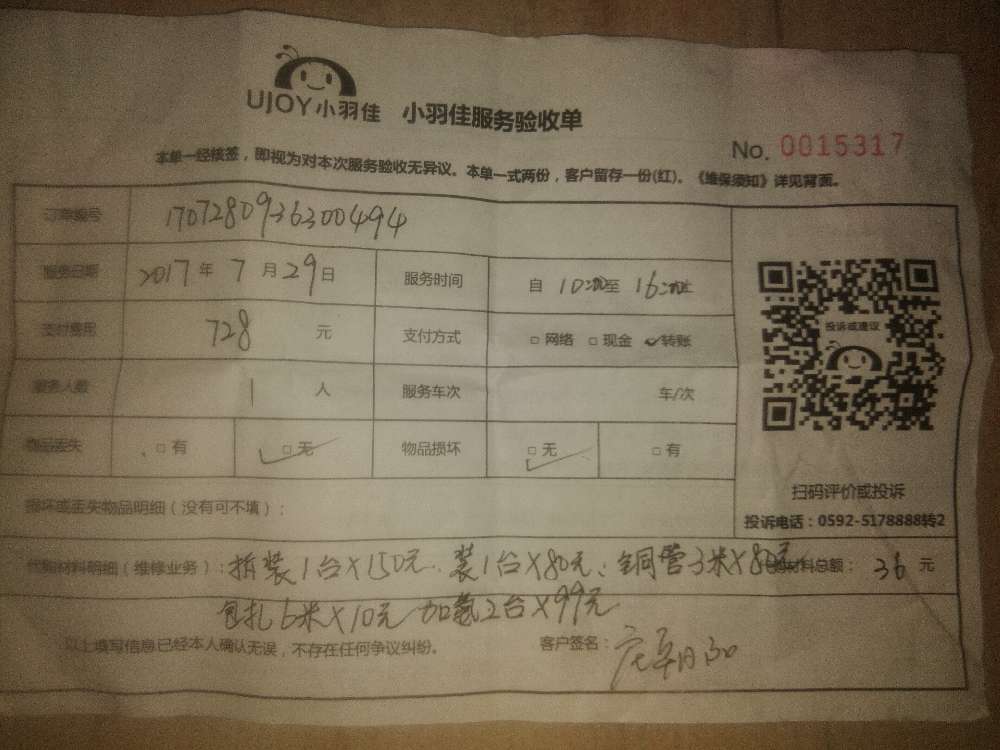 UJOY小羽佳 小羽佳服务验收单
No. 0015317
本单一经核签，即视为对本次服务验收无异议。本单一式两份，客户留存一份(红)。《维保须知》详见背面。
订单编号 1707280936300494
服务日期 2017年7月29日 服务时间 自10:00至16:00止
支付费用 728元 支付方式 □网络 □现金 ✓转账
服务人数 1人 服务车次 车/次
物品丢失 □有 □无 物品损坏 □无 □有
投诉或建议
扫码评价或投诉
投诉电话：0592-5178888转2
损坏或丢失物品明细（没有可不填）：
代购材料明细（维修业务）：拆装1台X150元、装1台X80元、铜管3米X80元 材料总额：36元
包扎6米X10元 加氨2台X99元
以上填写信息已经本人确认无误，不存在任何争议纠纷。 客户签名：